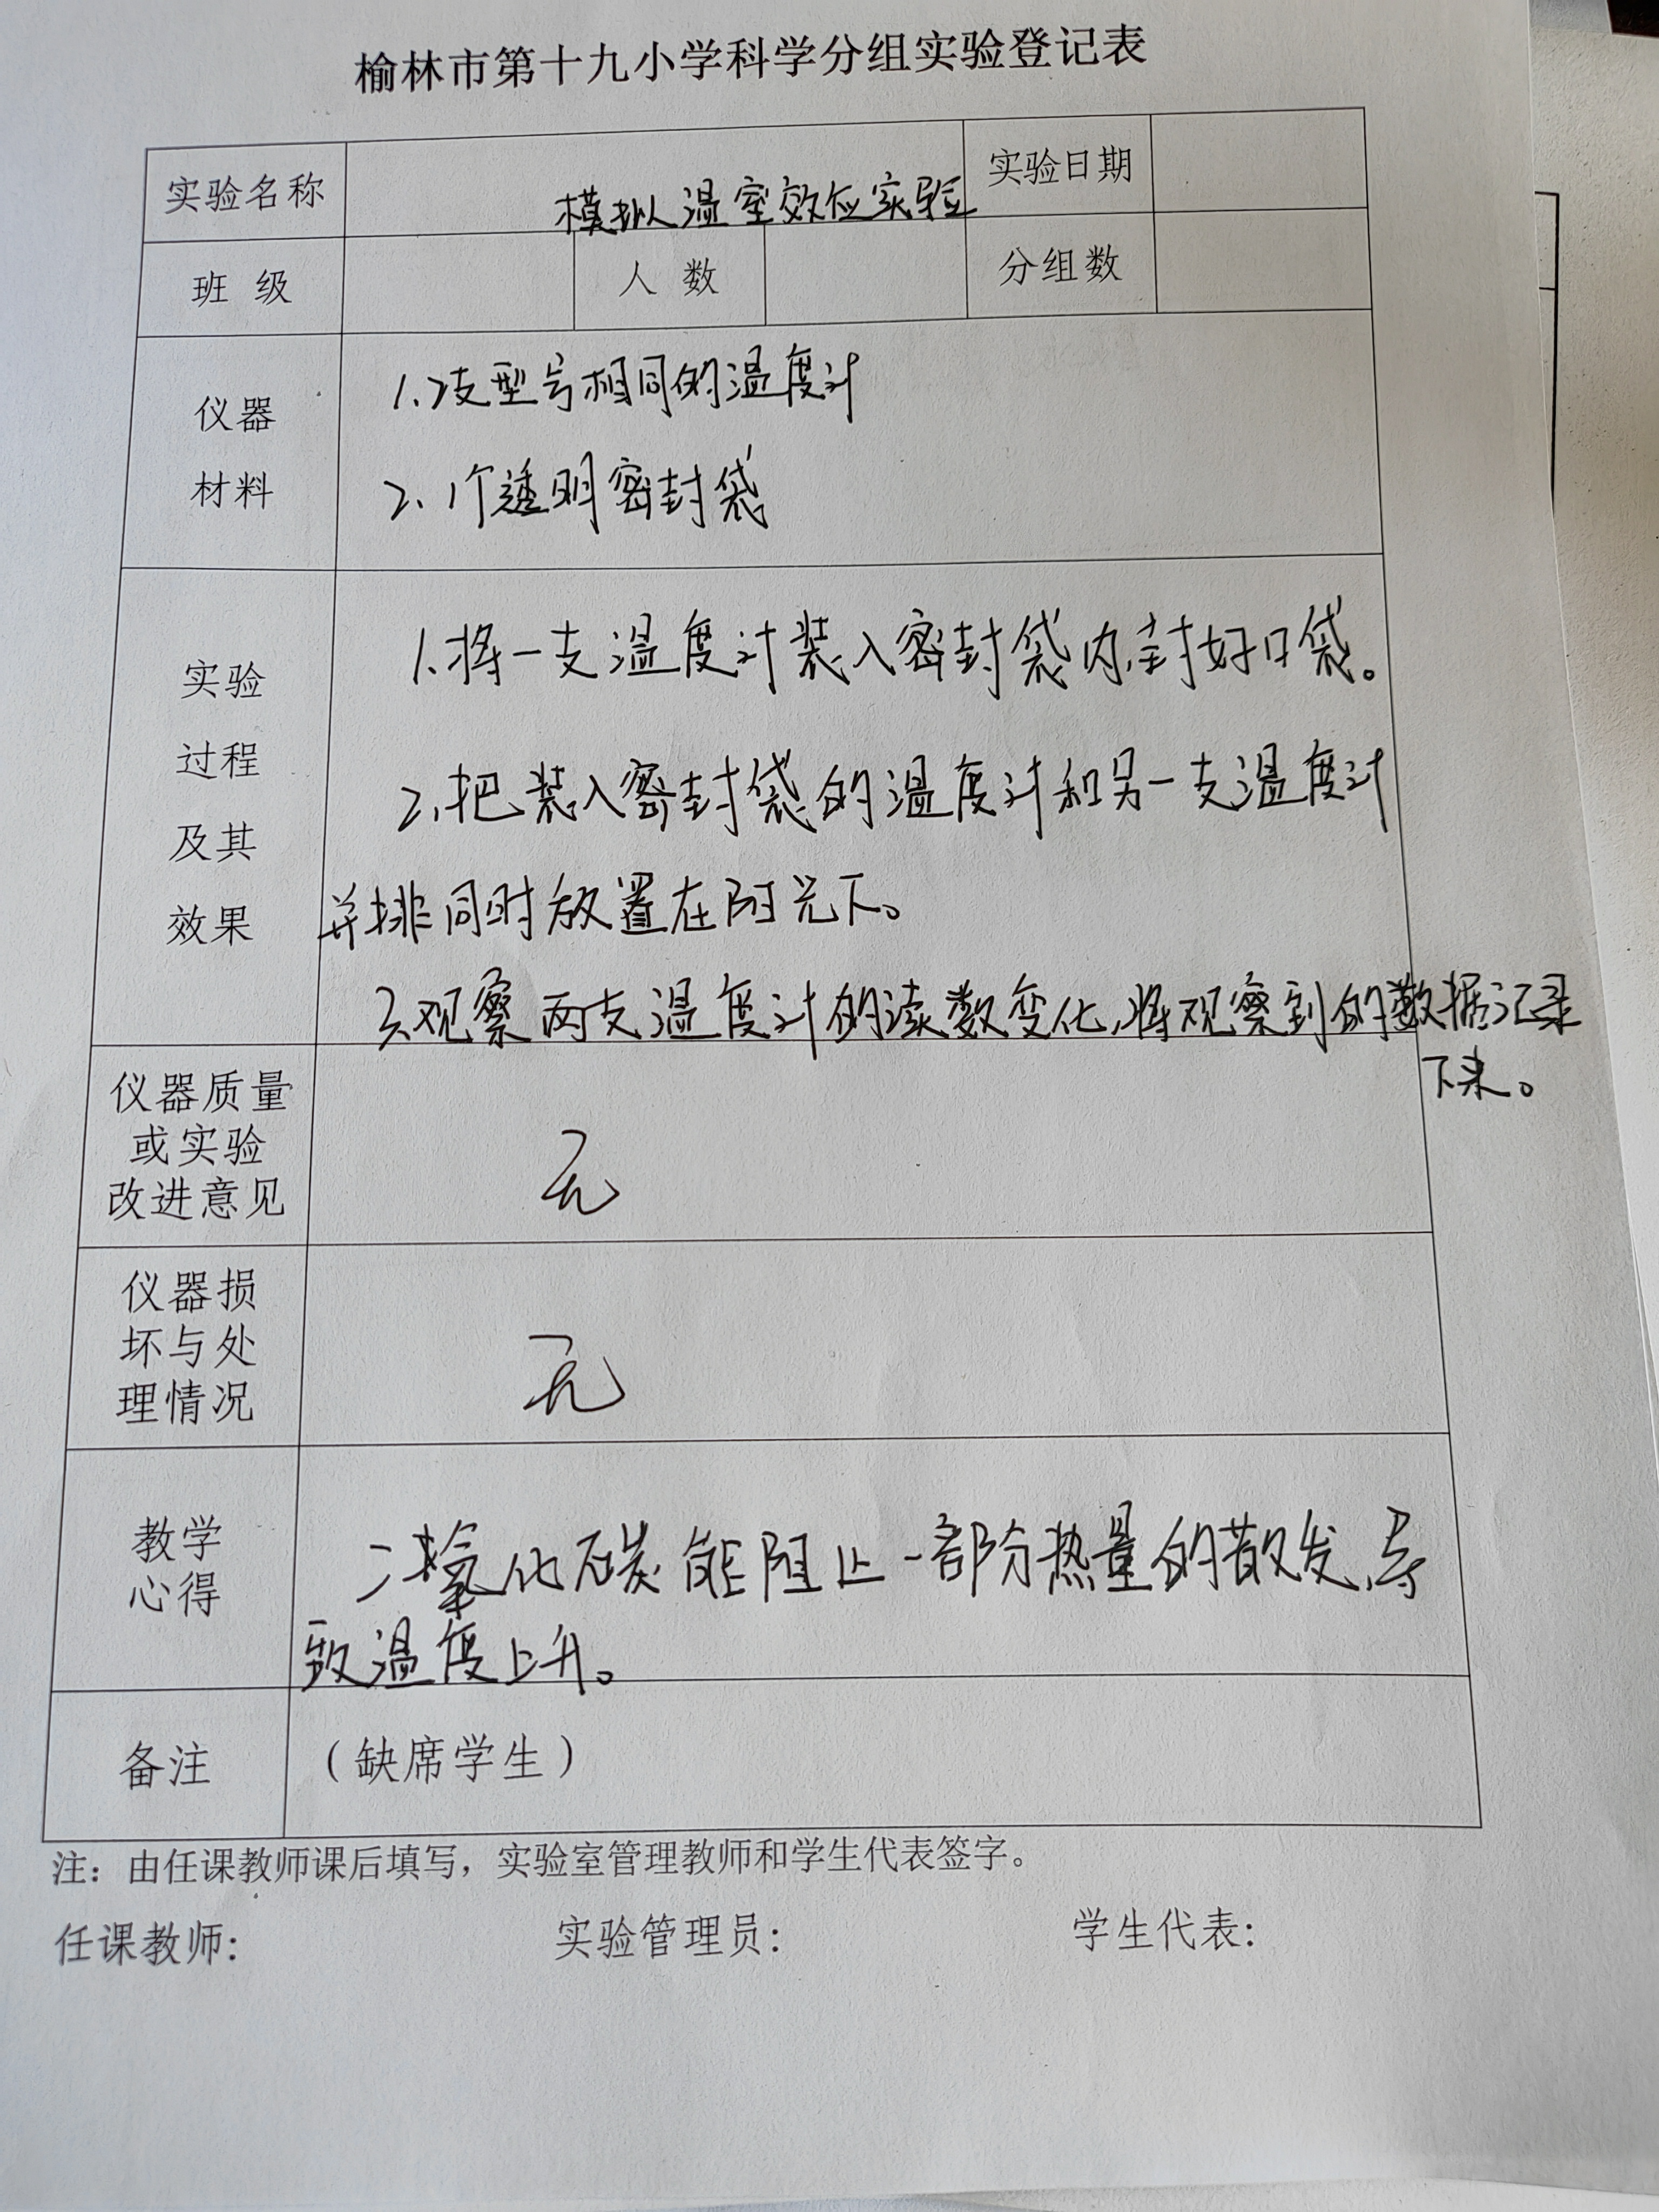 榆林市第十九小学科学分组实验登记表
实验名称 模拟温室效应实验 实验日期
班 级 人 数 分组数
仪器
材料
1.2支型号相同的温度计
2.1个透明密封袋
实验
过程
及其
效果
1.将一支温度计装入密封袋内,封好口袋。
2.把装入密封袋的温度计和另一支温度计
并排同时放置在阳光下。
3.观察两支温度计的读数变化,将观察到的数据记录
下来。
仪器质量
或实验
改进意见
无
仪器损
坏与处
理情况
无
教学
心得
二氧化碳能阻止一部分热量的散发,导
致温度上升。
备注 （缺席学生）
注：由任课教师课后填写，实验室管理教师和学生代表签字。
任课教师: 实验管理员: 学生代表: